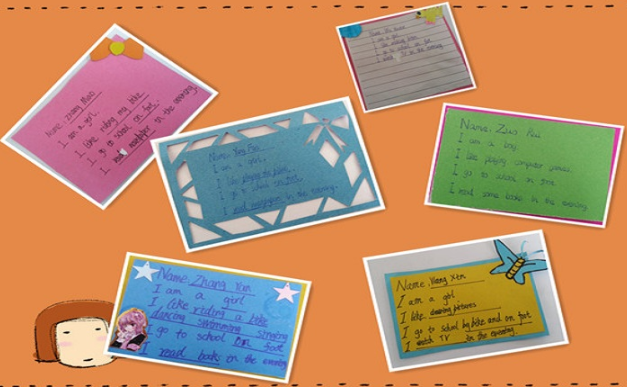 Name: Zhang
I am a girl.
I like riding my bike.
I go to school on foot.
I read newspaper in the evening
Name:
I am a girl.
I like
I go to school on foot
I watch TV in the evening
Name: Yang
I am a girl.
I like playing the
I go to school on foot.
I read in the evening.
Name: Zuo
I am a boy.
I like playing computer games.
I go to school on
I read some books in the evening.
Name: Zhang Yan
I am a girl
I like riding a bike
dancing swimming singing
I go to school on foot
I read books in the evening
Name:
I am a girl
I like drawing pictures
I go to school by bike and on foot
I watch TV in the evening